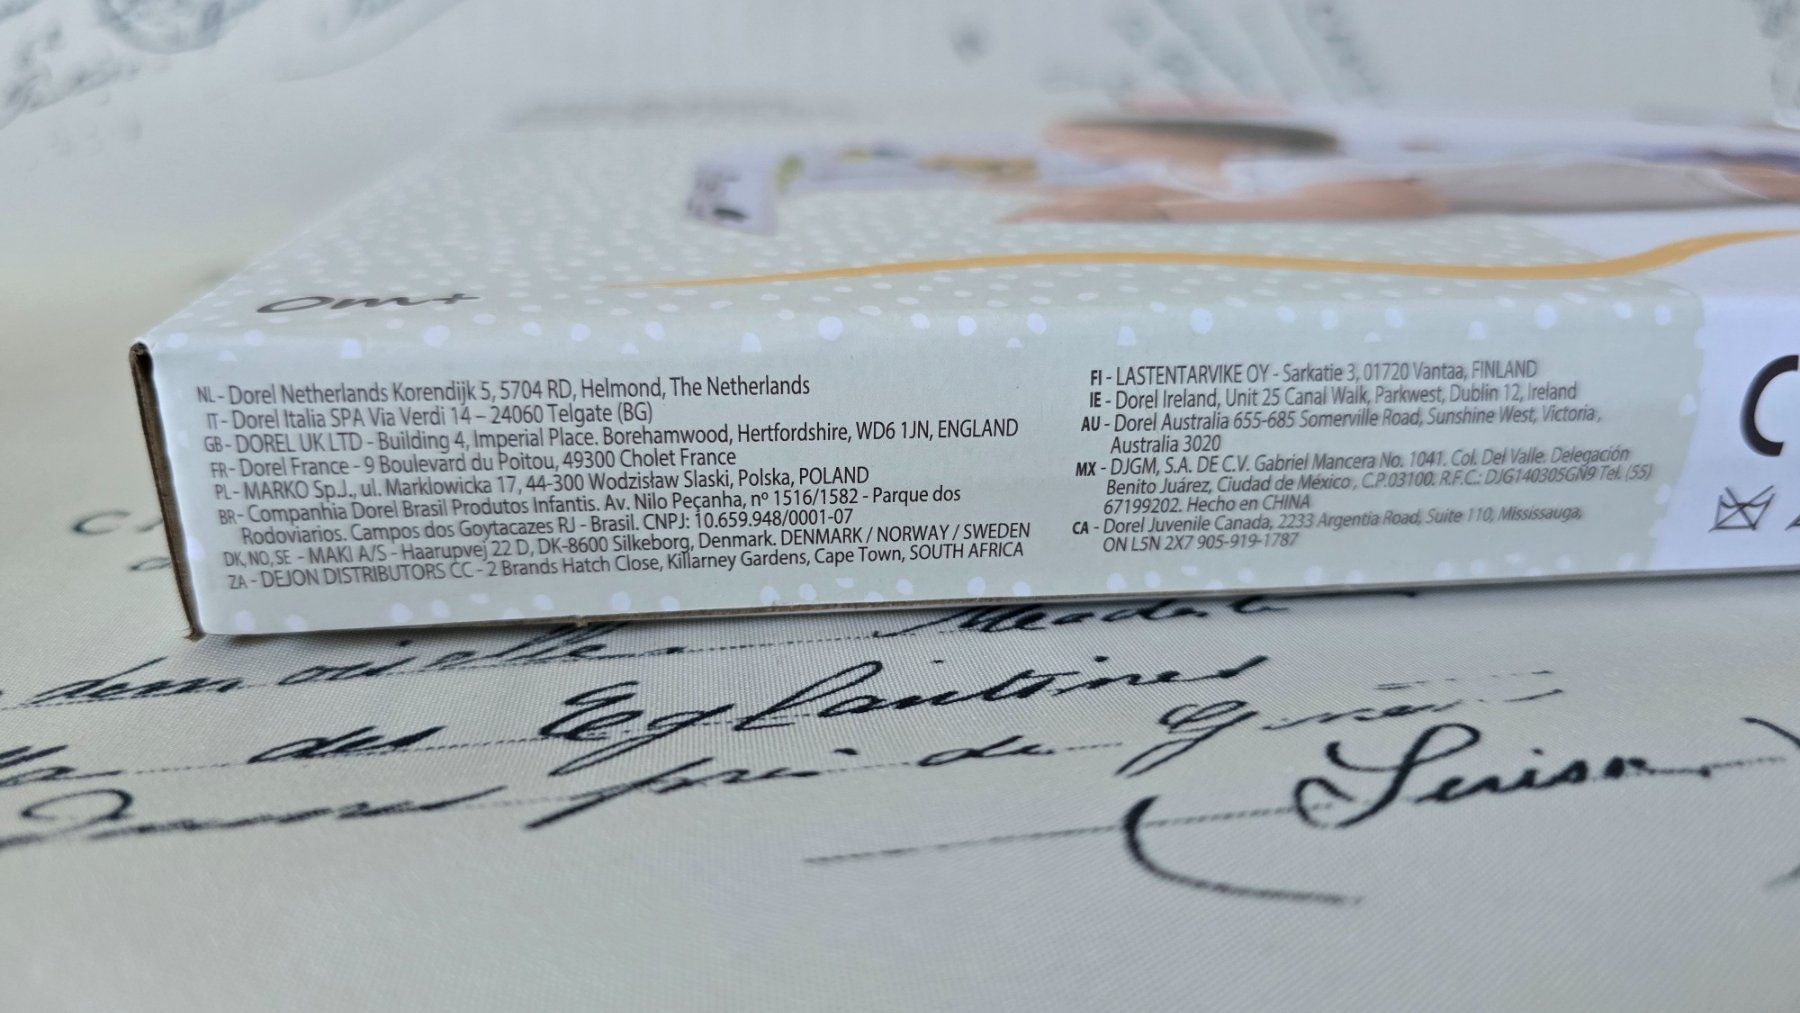 0m+
NL - Dorel Netherlands Korendijk 5, 5704 RD, Helmond, The Netherlands
IT - Dorel Italia SPA Via Verdi 14 – 24060 Telgate (BG)
GB - DOREL UK LTD - Building 4, Imperial Place. Borehamwood, Hertfordshire, WD6 1JN, ENGLAND
FR - Dorel France - 9 Boulevard du Poitou, 49300 Cholet France
PL - MARKO Sp.J., ul. Marklowicka 17, 44-300 Wodzisław Slaski, Polska, POLAND
BR - Companhia Dorel Brasil Produtos Infantis. Av. Nilo Peçanha, nº 1516/1582 - Parque dos
Rodoviarios. Campos dos Goytacazes RJ - Brasil. CNPJ: 10.659.948/0001-07
DK, NO, SE - MAKI A/S - Haarupvej 22 D, DK-8600 Silkeborg, Denmark. DENMARK / NORWAY / SWEDEN
ZA - DEJON DISTRIBUTORS CC - 2 Brands Hatch Close, Killarney Gardens, Cape Town, SOUTH AFRICA
FI - LASTENTARVIKE OY - Sarkatie 3, 01720 Vantaa, FINLAND
IE - Dorel Ireland, Unit 25 Canal Walk, Parkwest, Dublin 12, Ireland
AU - Dorel Australia 655-685 Somerville Road, Sunshine West, Victoria,
Australia 3020
MX - DJGM, S.A. DE C.V. Gabriel Mancera No. 1041. Col. Del Valle. Delegación
Benito Juárez, Ciudad de México, C.P.03100. R.F.C.: DJG140305GN9 Tel. (55)
67199202. Hecho en CHINA
CA - Dorel Juvenile Canada, 2233 Argentia Road, Suite 110, Mississauga,
ON L5N 2X7 905-919-1787
des Eglantines